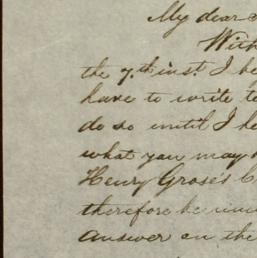 My dear
With
the 7th inst I
have to write
do so until I
what you may
Henry Grose's
therefore be
answer on the